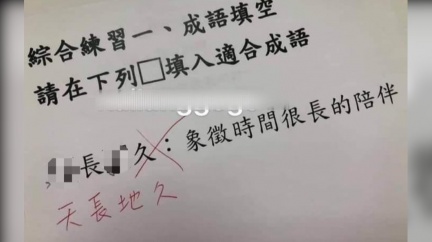 綜合練習一、成語填空
請在下列□填入適合成語
長久：象徵時間很長的陪伴
天長地久